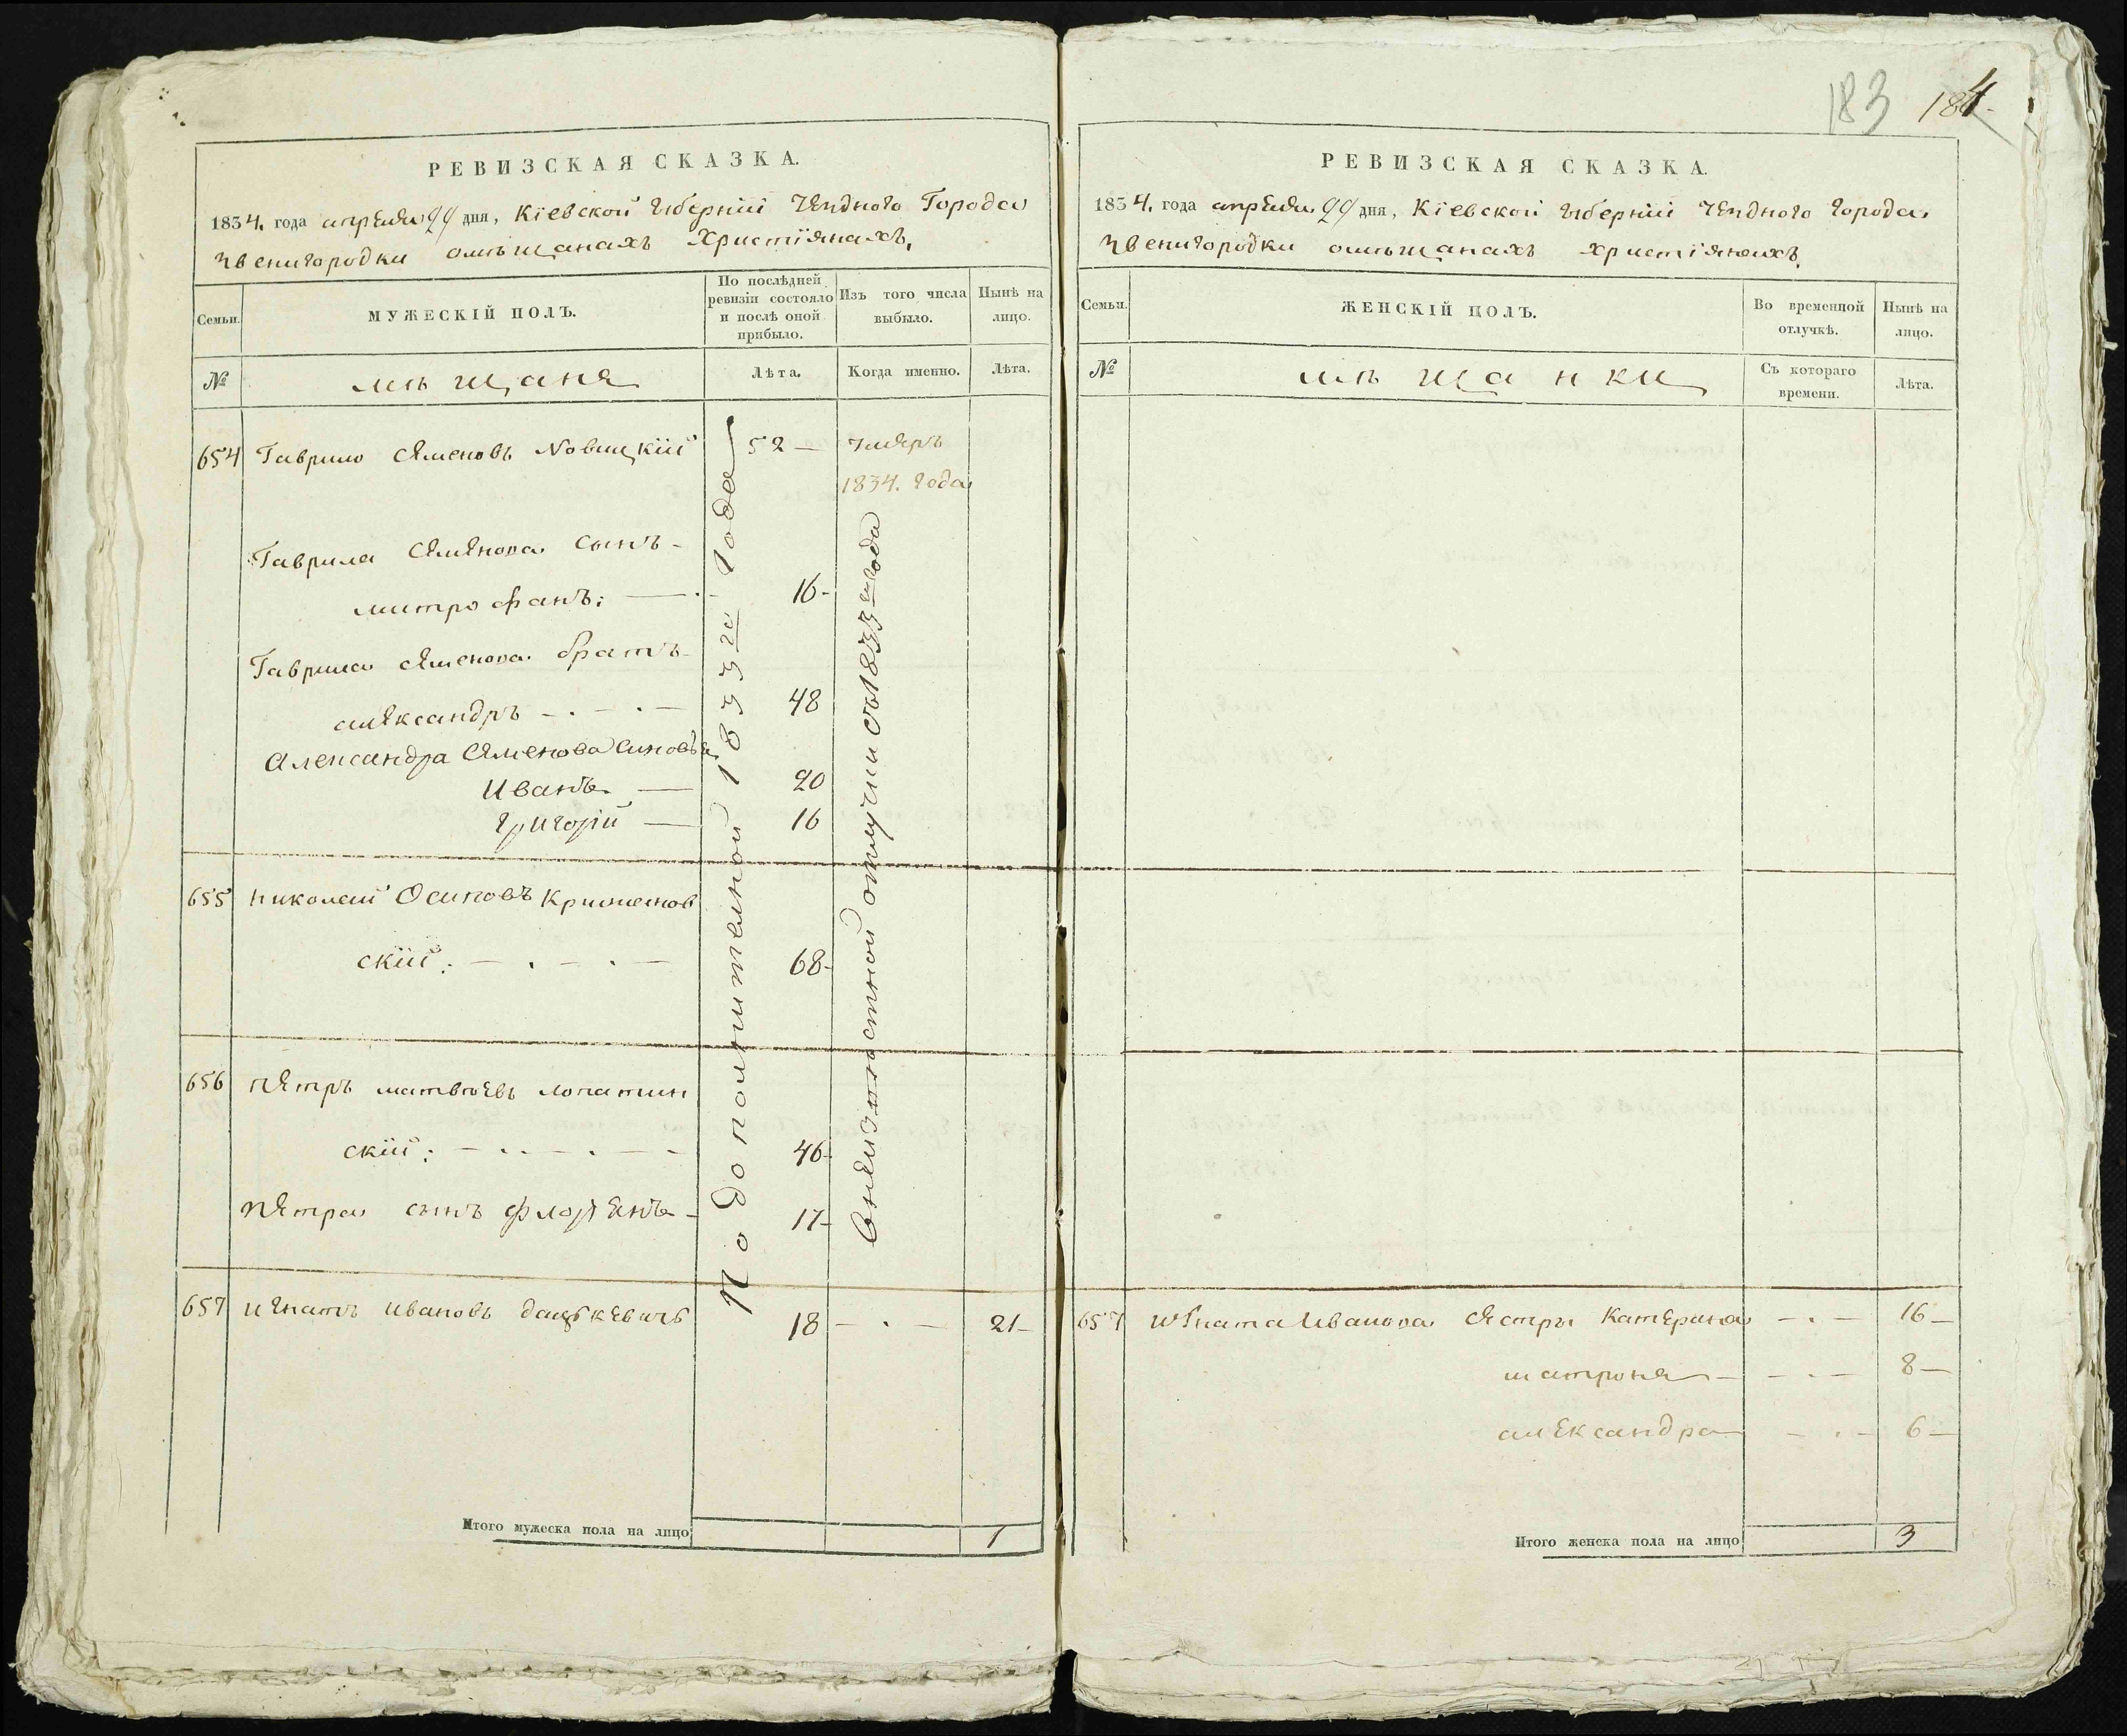 183 184
РЕВИЗСКАЯ СКАЗКА.
1834. года апреля 29 дня, Кіевской губерніи уезднаго Города
звенигородки омѣщанахъ Христіянахъ.
Семьи.
МУЖЕСКІЙ ПОЛЪ.
По послѣдней ревизіи состояло и послѣ оной прибыло.
Изъ того числа выбыло.
Нынѣ на лицо.
№
мѣщане
Лѣта.
Когда именно.
Лѣта.
654 Гаврило Семеновъ Новицкій 52 — умеръ
1834. года
Гаврила Семенова сынъ -
митрофанъ: — 16 -
Гаврила Семенова братъ -
александръ - . - . - 48
Александра Семенова синовья
Иванъ — 20
григорій — 16
655 николай Осиповъ Крижанов
скій: - . - . - 68 -
656 петръ матвѣевъ лопатин
скій: - . . - . - - 46 -
петра сынъ флоренъ - 17 -
657 игнатъ ивановъ дацкевичъ 18 - . - 21 -
По дополнителной 1833 го года
Внеизвѣстной отлучки съ 1833 го года
Итого мужеска пола на лицо 1
РЕВИЗСКАЯ СКАЗКА.
1834. года апреля 29 дня, Кіевской губерніи уезднаго города
звенигородки омѣщанахъ христіянахъ.
Семьи.
ЖЕНСКІЙ ПОЛЪ.
Во временной отлучкѣ.
Нынѣ на лицо.
№
мѣщанки
Съ котораго времени.
Лѣта.
657 игната Иванова сестры Катерина - . - 16 -
матрона - - . - 8 -
александра - . - 6 -
Итого женска пола на лицо 3